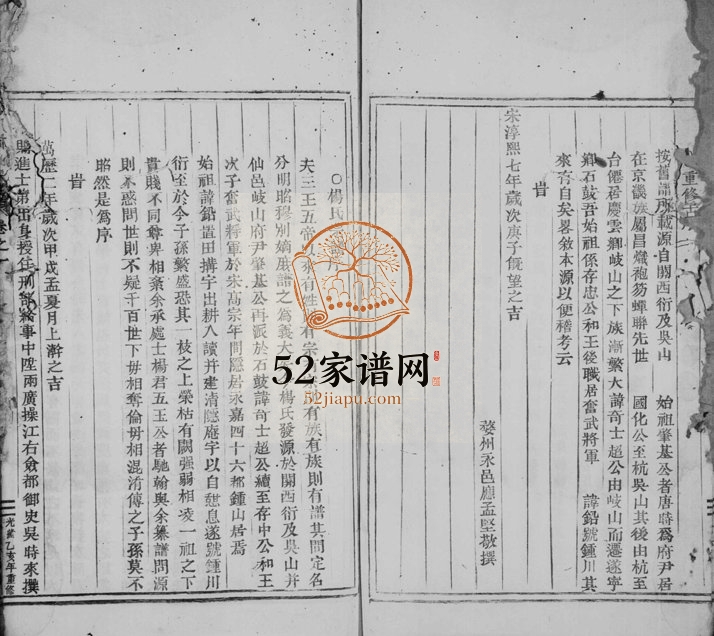 重修
按舊譜所載源自關西衍及吳山　始祖肇基公者唐時為府尹居
在京畿族屬昌熾袍笏蟬聯先世　國化公至杭吳山其後由杭至
台僊居慶雲鄉岐山之下族漸繁大諱奇士超公由岐山而遷遂寧
鄉石鼓吾始祖係存忠公和王後職居奮武將軍　諱鉛號鍾川其
來有自矣畧敘本源以便稽考云
旹
宋淳熙七年歲次庚子旣望之吉
婺州永邑廳孟堅敬撰
〇楊氏序
夫三王五帝以來有姓有宗有族有族則有譜其間定名
分明昭穆別嫡庶譜之為義大楊氏發源於關西衍及吳山并
仙邑岐山府尹肇基公再派於石鼓諱奇士超公續至存中公和王
次子奮武將軍於宋高宗年間隱居永嘉四十六都鍾山居焉
始祖諱鉛置田搆宇出耕入讀并建清隱庵宇以自憇息遂號鍾川
衍至於今子孫繁盛恐其一枝之上榮枯有闕强弱相凌一祖之下
貴賤不同尊卑相紊余承處士楊君五玉公者馳翰與余纂譜問源
則不惑問世則不疑千百世下毋相奪倫毋相混淆傳之子孫莫不
昭然是為序
旹
萬歷二年歲次甲戌孟夏月上澣之吉
賜進士第出身授任刑部給事中陞兩廣操江右僉都御史吳時來撰
卷之一
光緒乙亥年重修
52家谱网
52jiapu.com